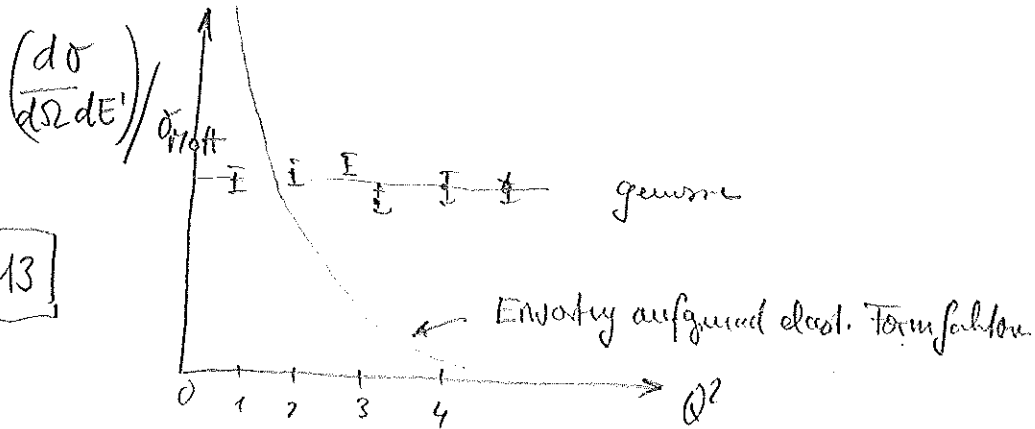 (dσ/dΩdE')/σMott
gemessen
13
Erwartung aufgrund elast. Formfaktoren
0 1 2 3 4
Q²